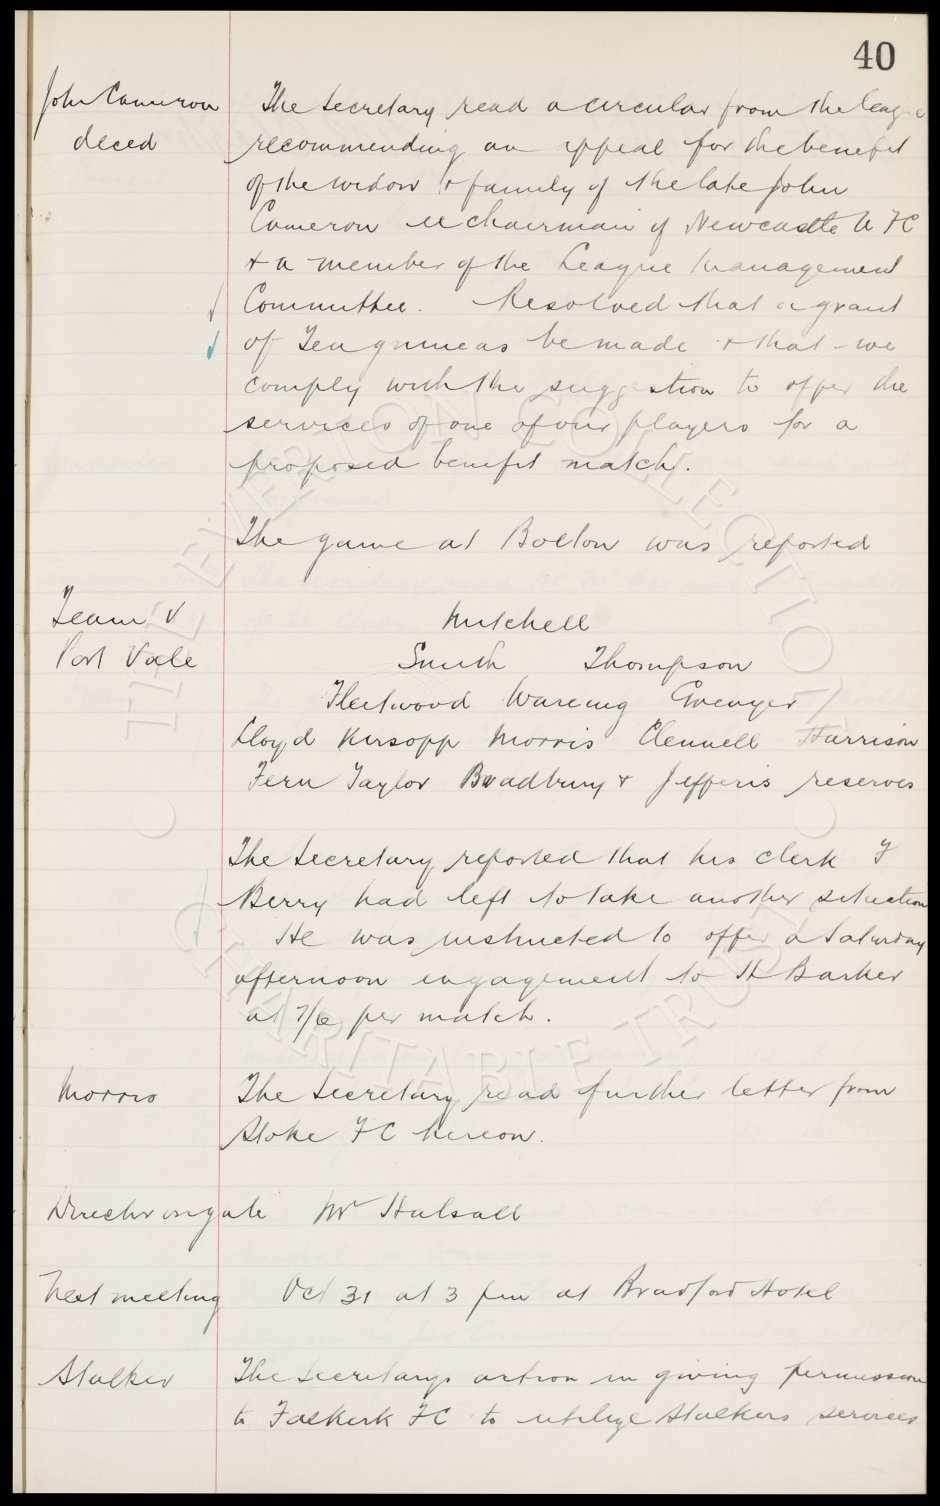 40
John Cameron The Secretary read a circular from the League
deced recommending an appeal for the benefit
of the widow & family of the late John
Cameron exchairman of Newcastle U FC
& a member of the League Management
Committee. Resolved that a grant
of Ten guineas be made & that we
comply with the suggestion to offer the
services of one of our players for a
proposed benefit match.
The game at Bolton was reported
Team V Mitchell
Port Vale Smith Thompson
Fleetwood Wareing Grenyer
Lloyd Kirsopp Morris Clennell Harrison
Fern Taylor Bradbury & Jefferis reserves
The Secretary reported that his clerk F
Berry had left to take another situation
He was instructed to offer a Saturday
afternoon engagement to H Barker
at 7/6 per match.
Morris The Secretary read further letter from
Stoke FC hereon.
Director on gate Mr Halsall
Next meeting Oct 31 at 3 pm at Bradford Hotel
Stalker The Secretarys action in giving permission
to Falkirk FC to utilize Stalkers services
THE EVERTON COLLECTION
CHARITABLE TRUST